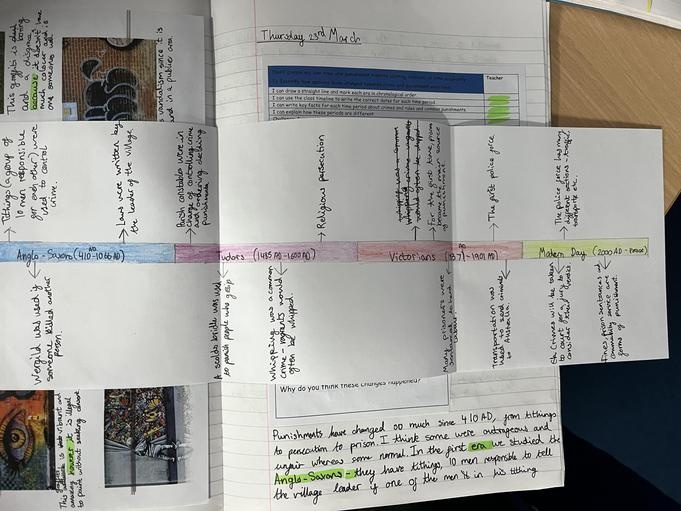 Thursday 23rd March
Teacher
I can draw a straight line and mark each era in chronological order.
I can use the class timeline to write the correct dates for each time period.
I can write key facts for each time period about crimes and rules and common punishments
I can explain how these periods are different
This graffiti is
and boring
because it doesn't have
much colour and is
someones
vandalism since it is
and in a public area.
Tithings (a group of
10 men responsible
for each other) were
used to control
crime.
Laws were written by
the leader of the village
Parish constables were in
charge of controlling crime
and ordering
punishments
Religious persecution
For the first time, prison
became the main source
of punishment.
The first police force
The police force has many
different sections - traffic,
transport etc.
Anglo-Saxons (410-1066 AD)
Tudors (1485 AD-1600 AD)
Victorians (1837-1901 AD)
Modern Day (2000 AD - Present)
Wergild was used if
someone killed another
person.
A scolds bridle was used
to punish people who gossip
whipping was a common
crime -
often be whipped.
Many prisoners were
sentenced to hard
labour
Transportation was
used to send criminals
to Australia.
Crimes will be taken
to court for a jury to
consider
Fines, prison sentences and
community service are
forms of punishment.
This
vibrant and
amazing however it is illegal
to paint without seeking consent
Why do you think these changes happened?
Punishments have changed so much since 410 AD, from tithings
to persecution to prison. I think some were outrageous and
unfair whereas some normal. In the first era we studied the
Anglo-Saxons - they have tithings, 10 men responsible to tell
the village leader if one of the men is in his tithing